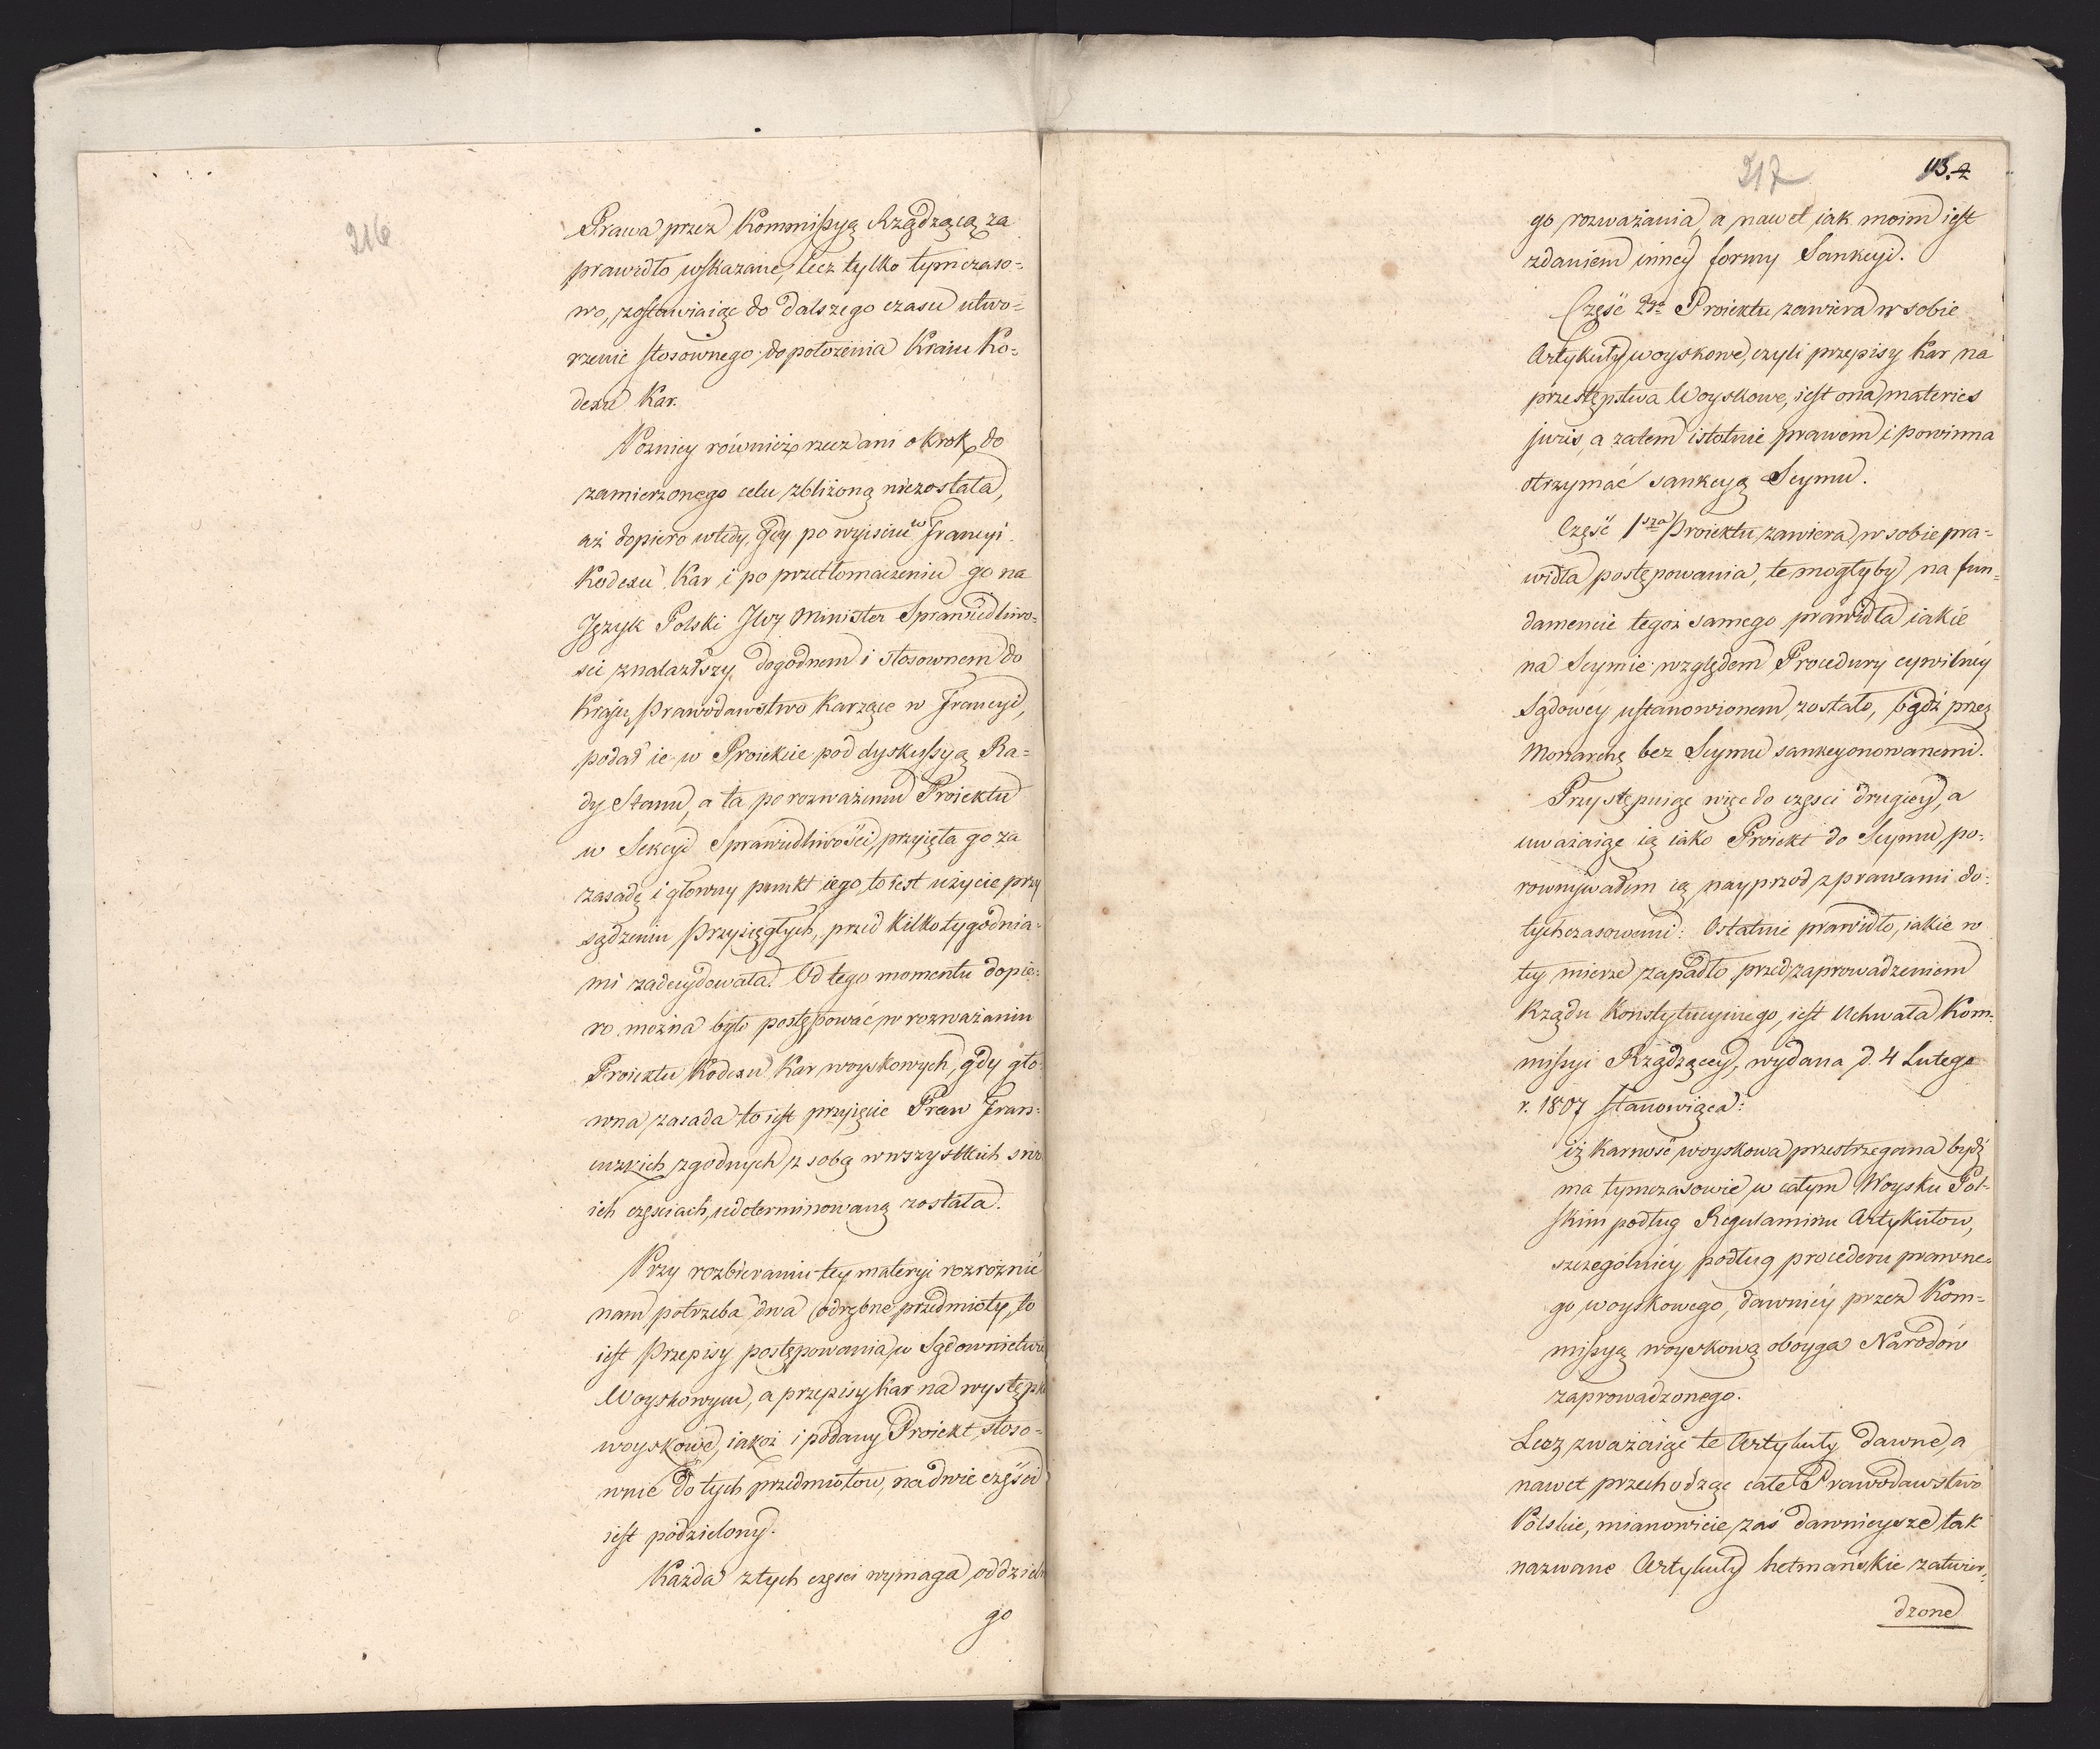 216
Prawa przez Kommissyą Rządzącą za
prawidło wskazane, lecz tylko tymczaso=
wo, zostawiaiąc do dalszego czasu utwo=
rzenie stosownego do położenia Kraiu Ko=
dexu Kar.
Pozniey również rzecz ani o krok do
zamierzonego celu zbliżoną niezostała,
aż dopiero wtedy, gdy po wyisciu w Francyi
Kodexu Kar i po przetłomaczeniu go na
Język Polski JWy Minister Sprawiedliwo=
sci znalazłszy dogodnem i stosownem do
Kraju Prawodawstwo Karzące w Francyi,
podał ie w Proiekcie pod dyskussyą Ra=
dy Stanu, a ta po rozważeniu Proiektu
w Sekcyi Sprawiedliwości, przyięła go za
zasadę i głowny punkt iego, to iest użycie przy
sądzeniu Przysięgłych, przed kilko tygodnia=
mi zadecydowała. Od tego momentu dopie=
ro można było postępować w rozważaniu
Proiektu Kodexu Kar woyskowych, gdy gło=
wna zasada to iest przyięcie Praw Fran=
cuzkich zgodnych z sobą w wszystkich swo
ich częsciach, udeterminowaną została.
Przy rozbieraniu tey materyi rozróżnić
nam potrzeba dwa odrębne przedmioty, to
iest Przepisy postępowania w Sądownictwie
Woyskowym, a przepisy Kar na występki
woyskowe, iakoż i podany Proiekt stoso=
wnie do tych przedmiotow, na dwie części
iest podzielony.
Każda z tych częsci wymaga oddzielne
go
217
113. 2
go rozważania, a nawet iak moim iest
zdaniem inney formy Sankcyi.
Część 2ga Proiektu zawiera w sobie
Artykuły woyskowe, czyli przepisy kar na
przestępstwa Woyskowe, iest ona materies
juris, a zatem istotnie prawem i powinna
otrzymać sankcyą Seymu.
Część 1sza Proiektu zawiera w sobie pra=
widła postępowania, te mogłyby na fun=
damencie tegoż samego prawidła iakie
na Seymie względem Procedury cywilnéy
Sądowéy ustanowionem zostało, bydź przez
Monarchę bez Seymu sankcyonowanemi.
Przystępuiąc więc do częsci drugiey, a
uważaiąc ią iako Proiekt do Seymu, po=
rownywałem ią nayprzod z prawami do=
tychczasowemi: Ostatnie prawidło, iakie w
tey mierze zapadło przed zaprowadzeniem
Rządu Konstytucyinego, iest Uchwała Kom=
missyi Rządzącey, wydana d. 4 Lutego
r. 1807 stanowiąca:
iż karność woyskowa przestrzegana bydź
ma tymczasowie w całym Woysku Pol=
skim podług Regulaminu Artykułow,
szczególniéy podług procederu prawne=
go woyskowego, dawniéy przez Kom=
missyą woyskową oboyga Narodów
zaprowadzonego.
Lecz zważaiąc te Artykuły dawne, a
nawet przechodząc całe Prawodawstwo
Polskie, mianowicie zaś dawnieysze tak
nazwane Artykuły hetmańskie zatwier=
dzone